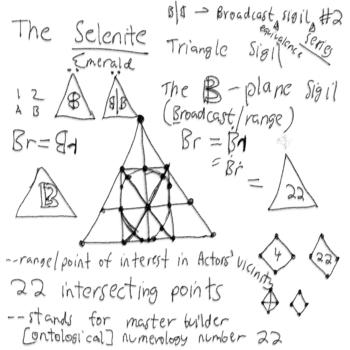 B|B → Broadcast sigil #2
equivalence series
The Selenite
Triangle Sigil
Emerald
B B|B
The B-plane Sigil
(Broadcast/range)
1 2
A B
Br = Br
Br = Br
= Br
= 22
B
4 22
4
--range/point of interest in Actors' vicinity
22 intersecting points
--stands for master builder
[ontological] numerology number 22